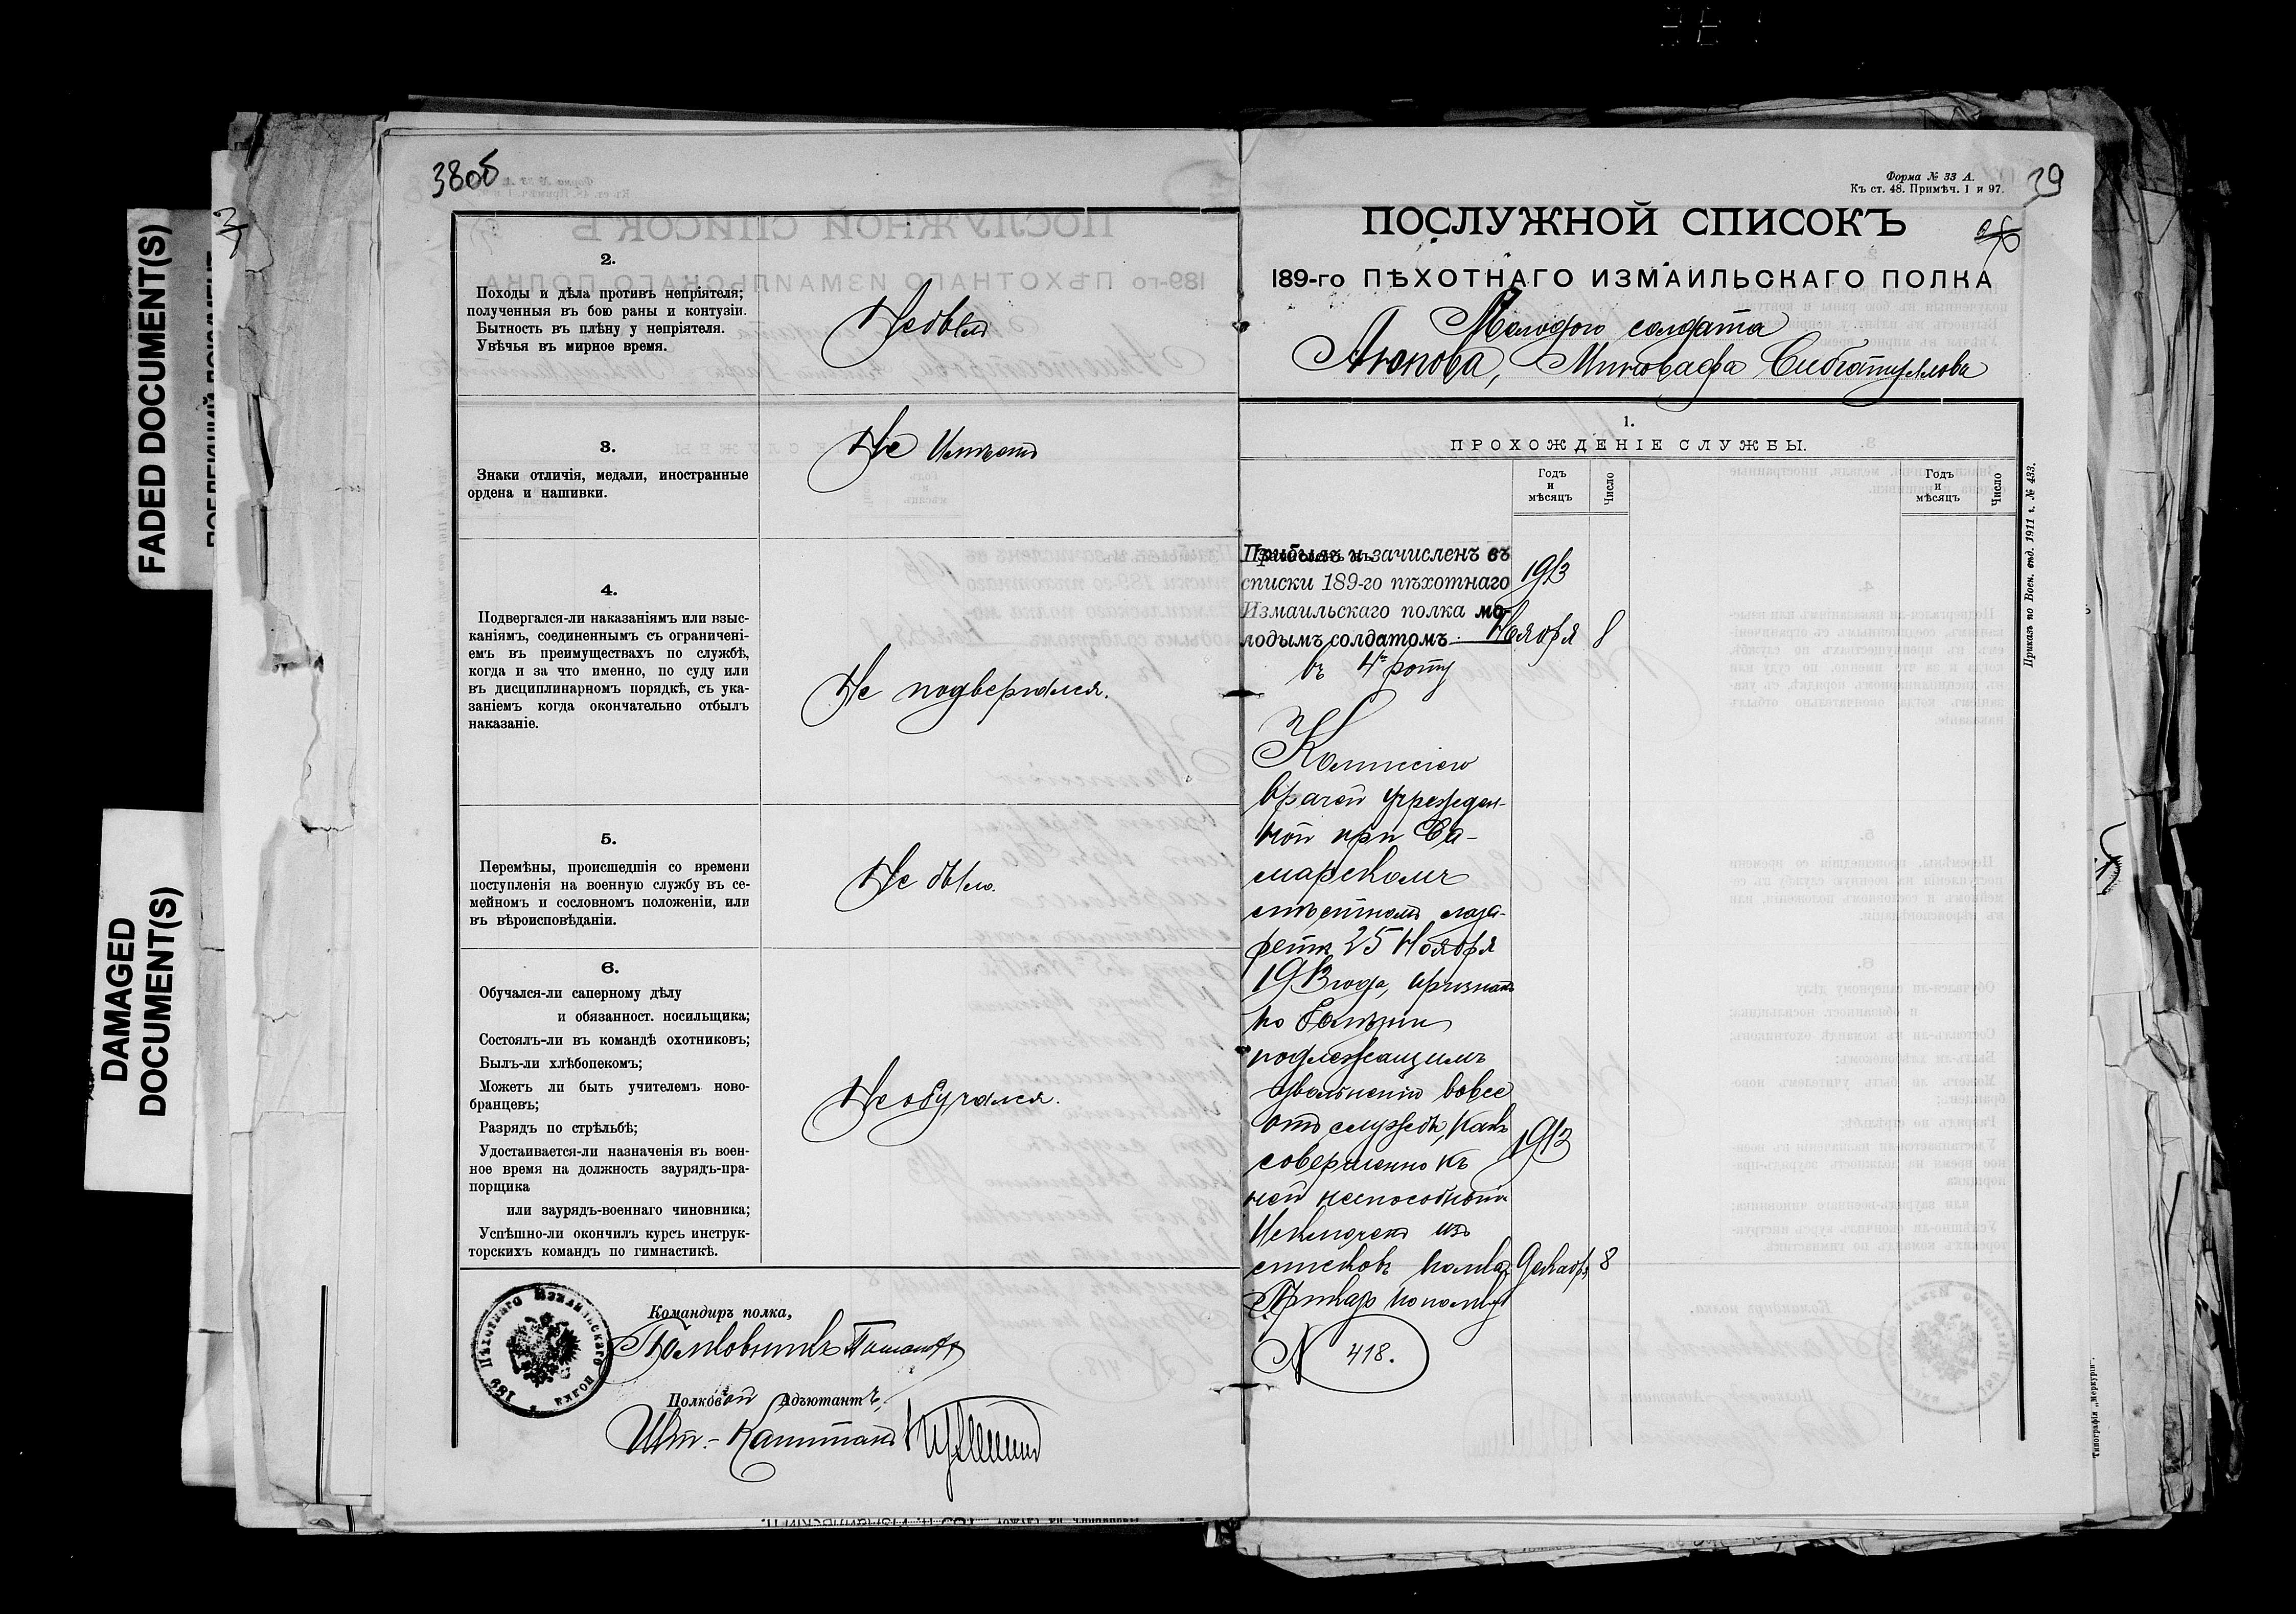 FADED DOCUMENT(S)
DAMAGED
DOCUMENT(S)
38об
2.
Походы и дѣла противъ непріятеля;
полученныя въ бою раны и контузіи.
Бытность въ плѣну у непріятеля.
Увѣчья въ мирное время.
Не былъ
3.
Знаки отличія, медали, иностранные
ордена и нашивки.
Не имѣетъ
4.
Подвергался-ли наказаніямъ или взыс-
каніямъ, соединеннымъ съ ограничені-
емъ въ преимуществахъ по службѣ,
когда и за что именно, по суду или
въ дисциплинарномъ порядкѣ, съ ука-
заніемъ когда окончательно отбылъ
наказаніе.
Не подвергался.
5.
Перемѣны, происшедшія со времени
поступленія на военную службу въ се-
мейномъ и сословномъ положеніи, или
въ вѣроисповѣданіи.
Не было.
6.
Обучался-ли саперному дѣлу
и обязанност. носильщика;
Состоялъ-ли въ командѣ охотниковъ;
Былъ-ли хлѣбопекомъ;
Можетъ ли быть учителемъ ново-
бранцевъ;
Разрядъ по стрѣльбѣ;
Удостаивается-ли назначенія въ воен-
ное время на должность заурядъ-пра-
порщика
или заурядъ-военнаго чиновника;
Успѣшно-ли окончилъ курсъ инструк-
торскихъ командъ по гимнастикѣ.
Не обучался.
Командиръ полка,
Полковникъ
Полковой Адъютантъ,
Шт.-Капитанъ
189 Пѣхотнаго Измаильскаго полка
39
Форма № 33 А.
Къ ст. 48. Примѣч. 1 и 97.
ПОСЛУЖНОЙ СПИСОКЪ
189-го ПѢХОТНАГО ИЗМАИЛЬСКАГО ПОЛКА
Молодого солдата
Аюпова, Миновафа Сибгатуллова
1.
ПРОХОЖДЕНІЕ СЛУЖБЫ.
Годъ
и
мѣсяцъ
Число
Годъ
и
мѣсяцъ
Число
Прибылъ и зачисленъ въ
списки 189-го пѣхотнаго
Измаильскаго полка мо-
лодымъ солдатомъ
въ 4ю роту
1913
Ноября 8
Комиссіею
врачей учрежден-
ной при Са-
марскомъ
мѣстномъ лаза-
ретѣ 25 Ноября
1913 года, признанъ
по болѣзни
подлежащимъ
увольненію вовсе
отъ службы, какъ
совершенно къ
ней неспособный
Исключенъ изъ
списковъ полка
Приказъ по полку
N 418.
1913
Декабря 8
Приказъ по Воен. вѣд. 1911 г. № 433.
Типографія „Меркурій“.